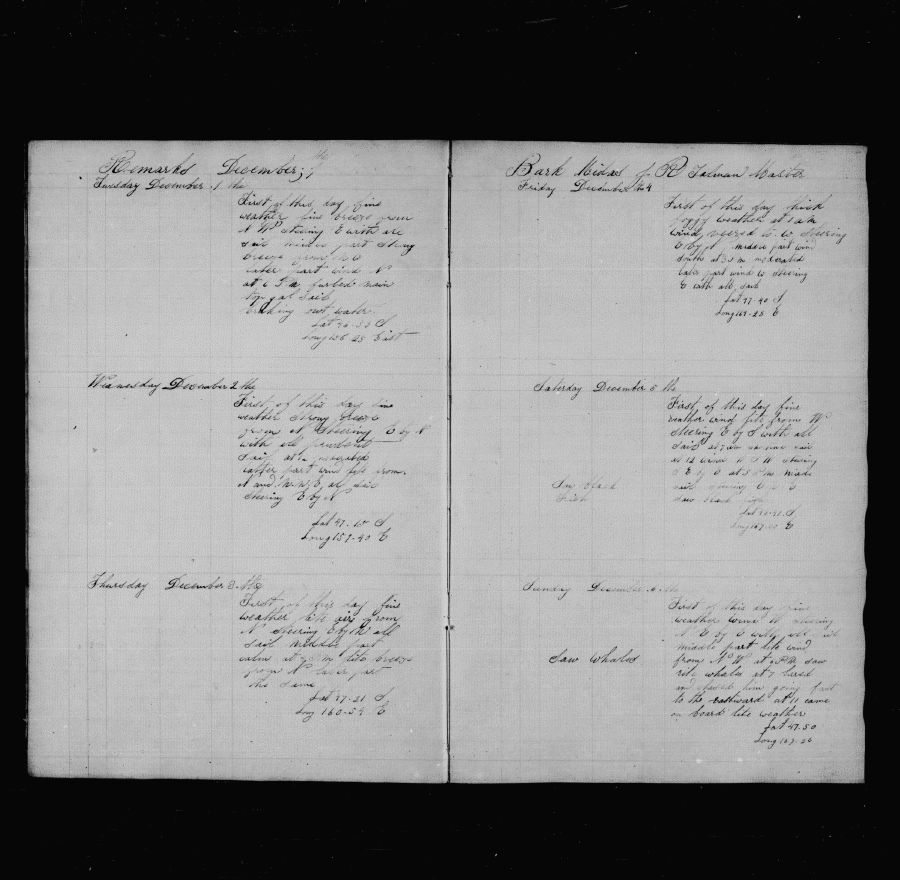 Remarks December;
Tuesday December 1 the
First of this day fine
weather fine breeze from
N W steering E with all
sail middle part strong
breeze from N W
later part wind N
at 6 P M furled main
top gal sail
breaking out water
Lat 46-50 S
Long 156-25 East
Wednesday December 2 the
First of this day fine
weather strong breeze
from N steering E by N
with all prudent
sail at
latter part wind lite from
N and N N E all sail
steering E by N
Lat 47-10 S
Long 157-40 E
Thursday December 3 the
First of this day fine
weather lite airs from
N steering E by N all
sail middle part
calm at 7 P M lite breeze
from N later part
the same
Lat 47-31 S
Long 160-59 E
Bark Midas of R Tolman Master
Friday December the 4
First of this day thick
foggy weather at 1 A M
wind veered to W steering
E by N middle part wind
south at 3 P M moderated
later part wind W steering
E with all sail
Lat 47-40 S
Long 164-25 E
Saturday December 5 the
First of this day fine
weather wind lite from W
steering E by S with all
sail at 7 A M
at 12 wind W S W steering
S E by E at 5 P M made
sail steering E
saw black fish
Saw black
Fish
Lat S
Long E
Sunday December 6 the
First of this day fine
weather wind W steering
N E by E with all sail
middle part lite wind
from N W at 4 P M saw
rite whales at 7 lowered
and chased him going fast
to the eastward at 11 came
on board lite weather
Saw Whales
Lat 47.50
Long